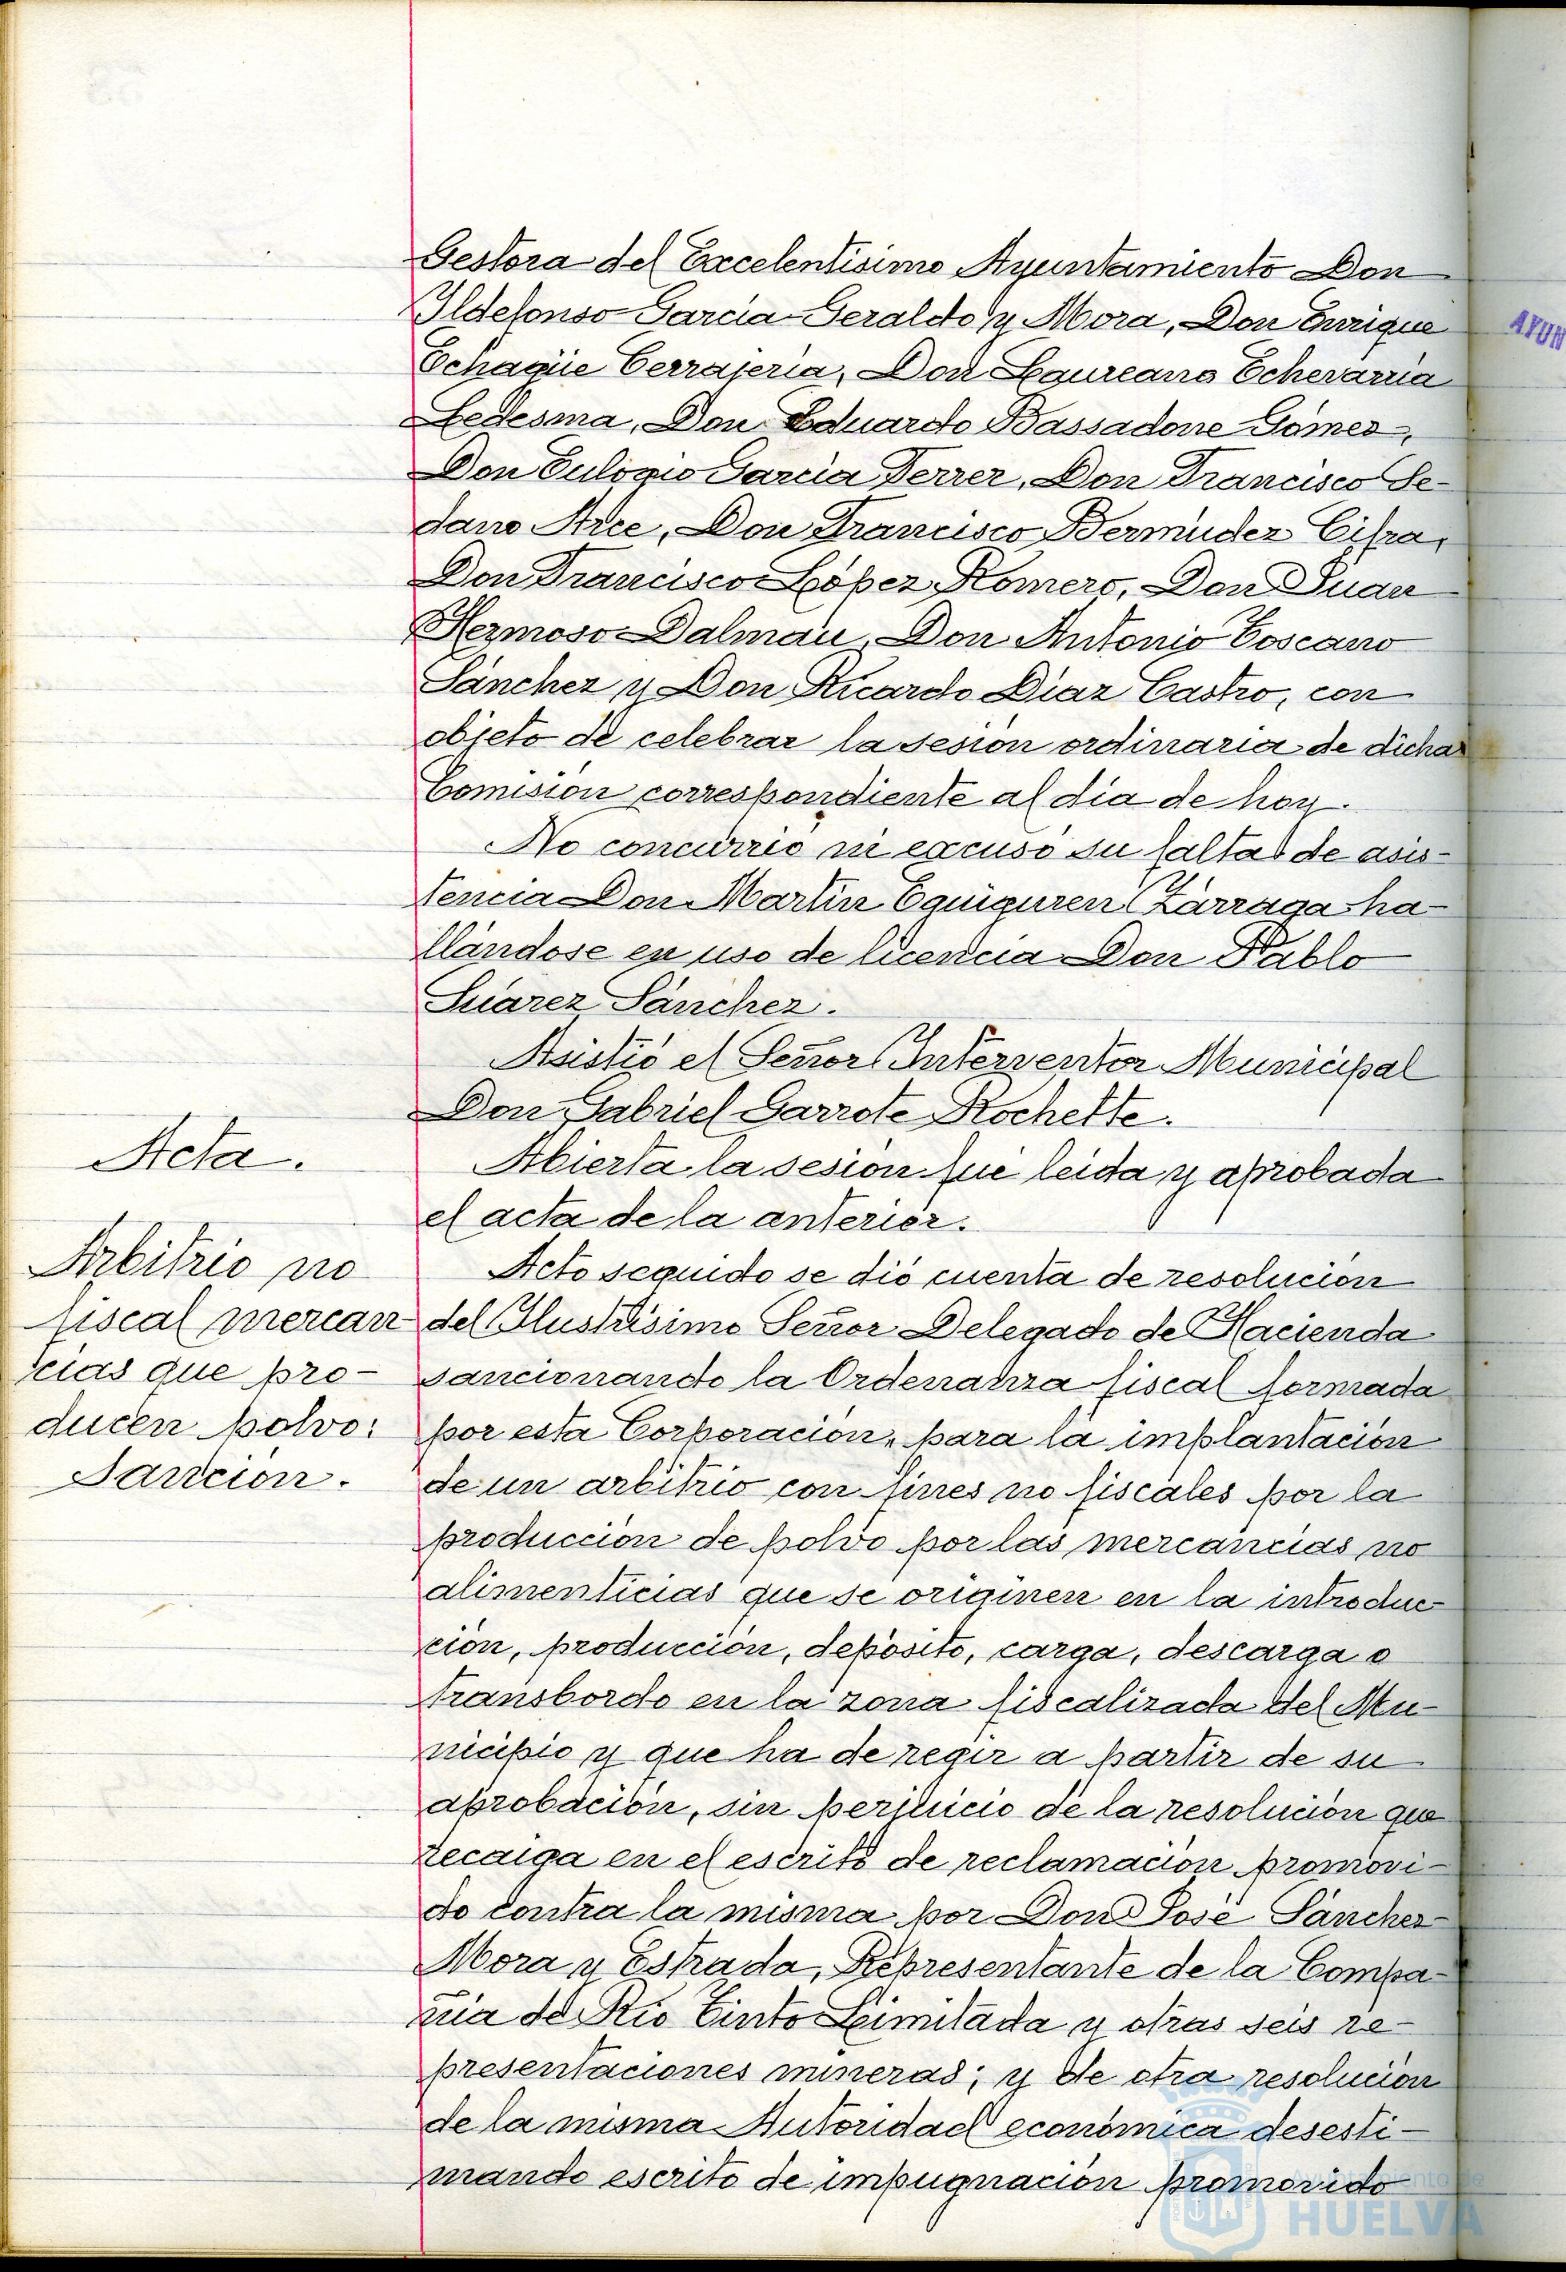 Gestora del Excelentísimo Ayuntamiento Don
Ildefonso García-Geraldo y Mora, Don Enrique
Echagüe Cerrajería, Don Laureano Echevarría
Ledesma, Don Eduardo Bassadone Gómez,
Don Eulogio García Ferrer, Don Francisco Se-
dano Arce, Don Francisco Bermúdez Cifra,
Don Francisco López Romero, Don Juan
Hermoso Dalmau, Don Antonio Toscano
Sánchez y Don Ricardo Díaz Castro, con
objeto de celebrar la sesión ordinaria de dicha
Comisión correspondiente al día de hoy.
No concurrió ni excusó su falta de asis-
tencia Don Martín Eguiguren Zárraga ha-
llándose en uso de licencia Don Pablo
Suárez Sánchez.
Asistió el Señor Interventor Municipal
Don Gabriel Garrote Rochette.
Acta.
Abierta la sesión fué leida y aprobada
el acta de la anterior.
Arbitrio no
fiscal mercan
cias que pro-
ducen polvo:
Sanción.
Acto seguido se dió cuenta de resolución
del Ilustrísimo Señor Delegado de Hacienda
sancionando la Ordenanza fiscal formada
por esta Corporación, para la implantación
de un arbitrio con fines no fiscales por la
producción de polvo por las mercancías no
alimenticias que se originen en la introduc-
ción, producción, depósito, carga, descarga o
transbordo en la zona fiscalizada del Mu-
nicipio y que ha de regir a partir de su
aprobación, sin perjuicio de la resolución que
recaiga en el escrito de reclamación promovi-
do contra la misma por Don José Sánchez
Mora y Estrada, Representante de la Compa-
ñía de Río Tinto Limitada y otras seis re-
presentaciones mineras; y de otra resolución
de la misma Autoridad económica desesti-
mando escrito de impugnación promovido
AYUN
Ayuntamiento de
HUELVA